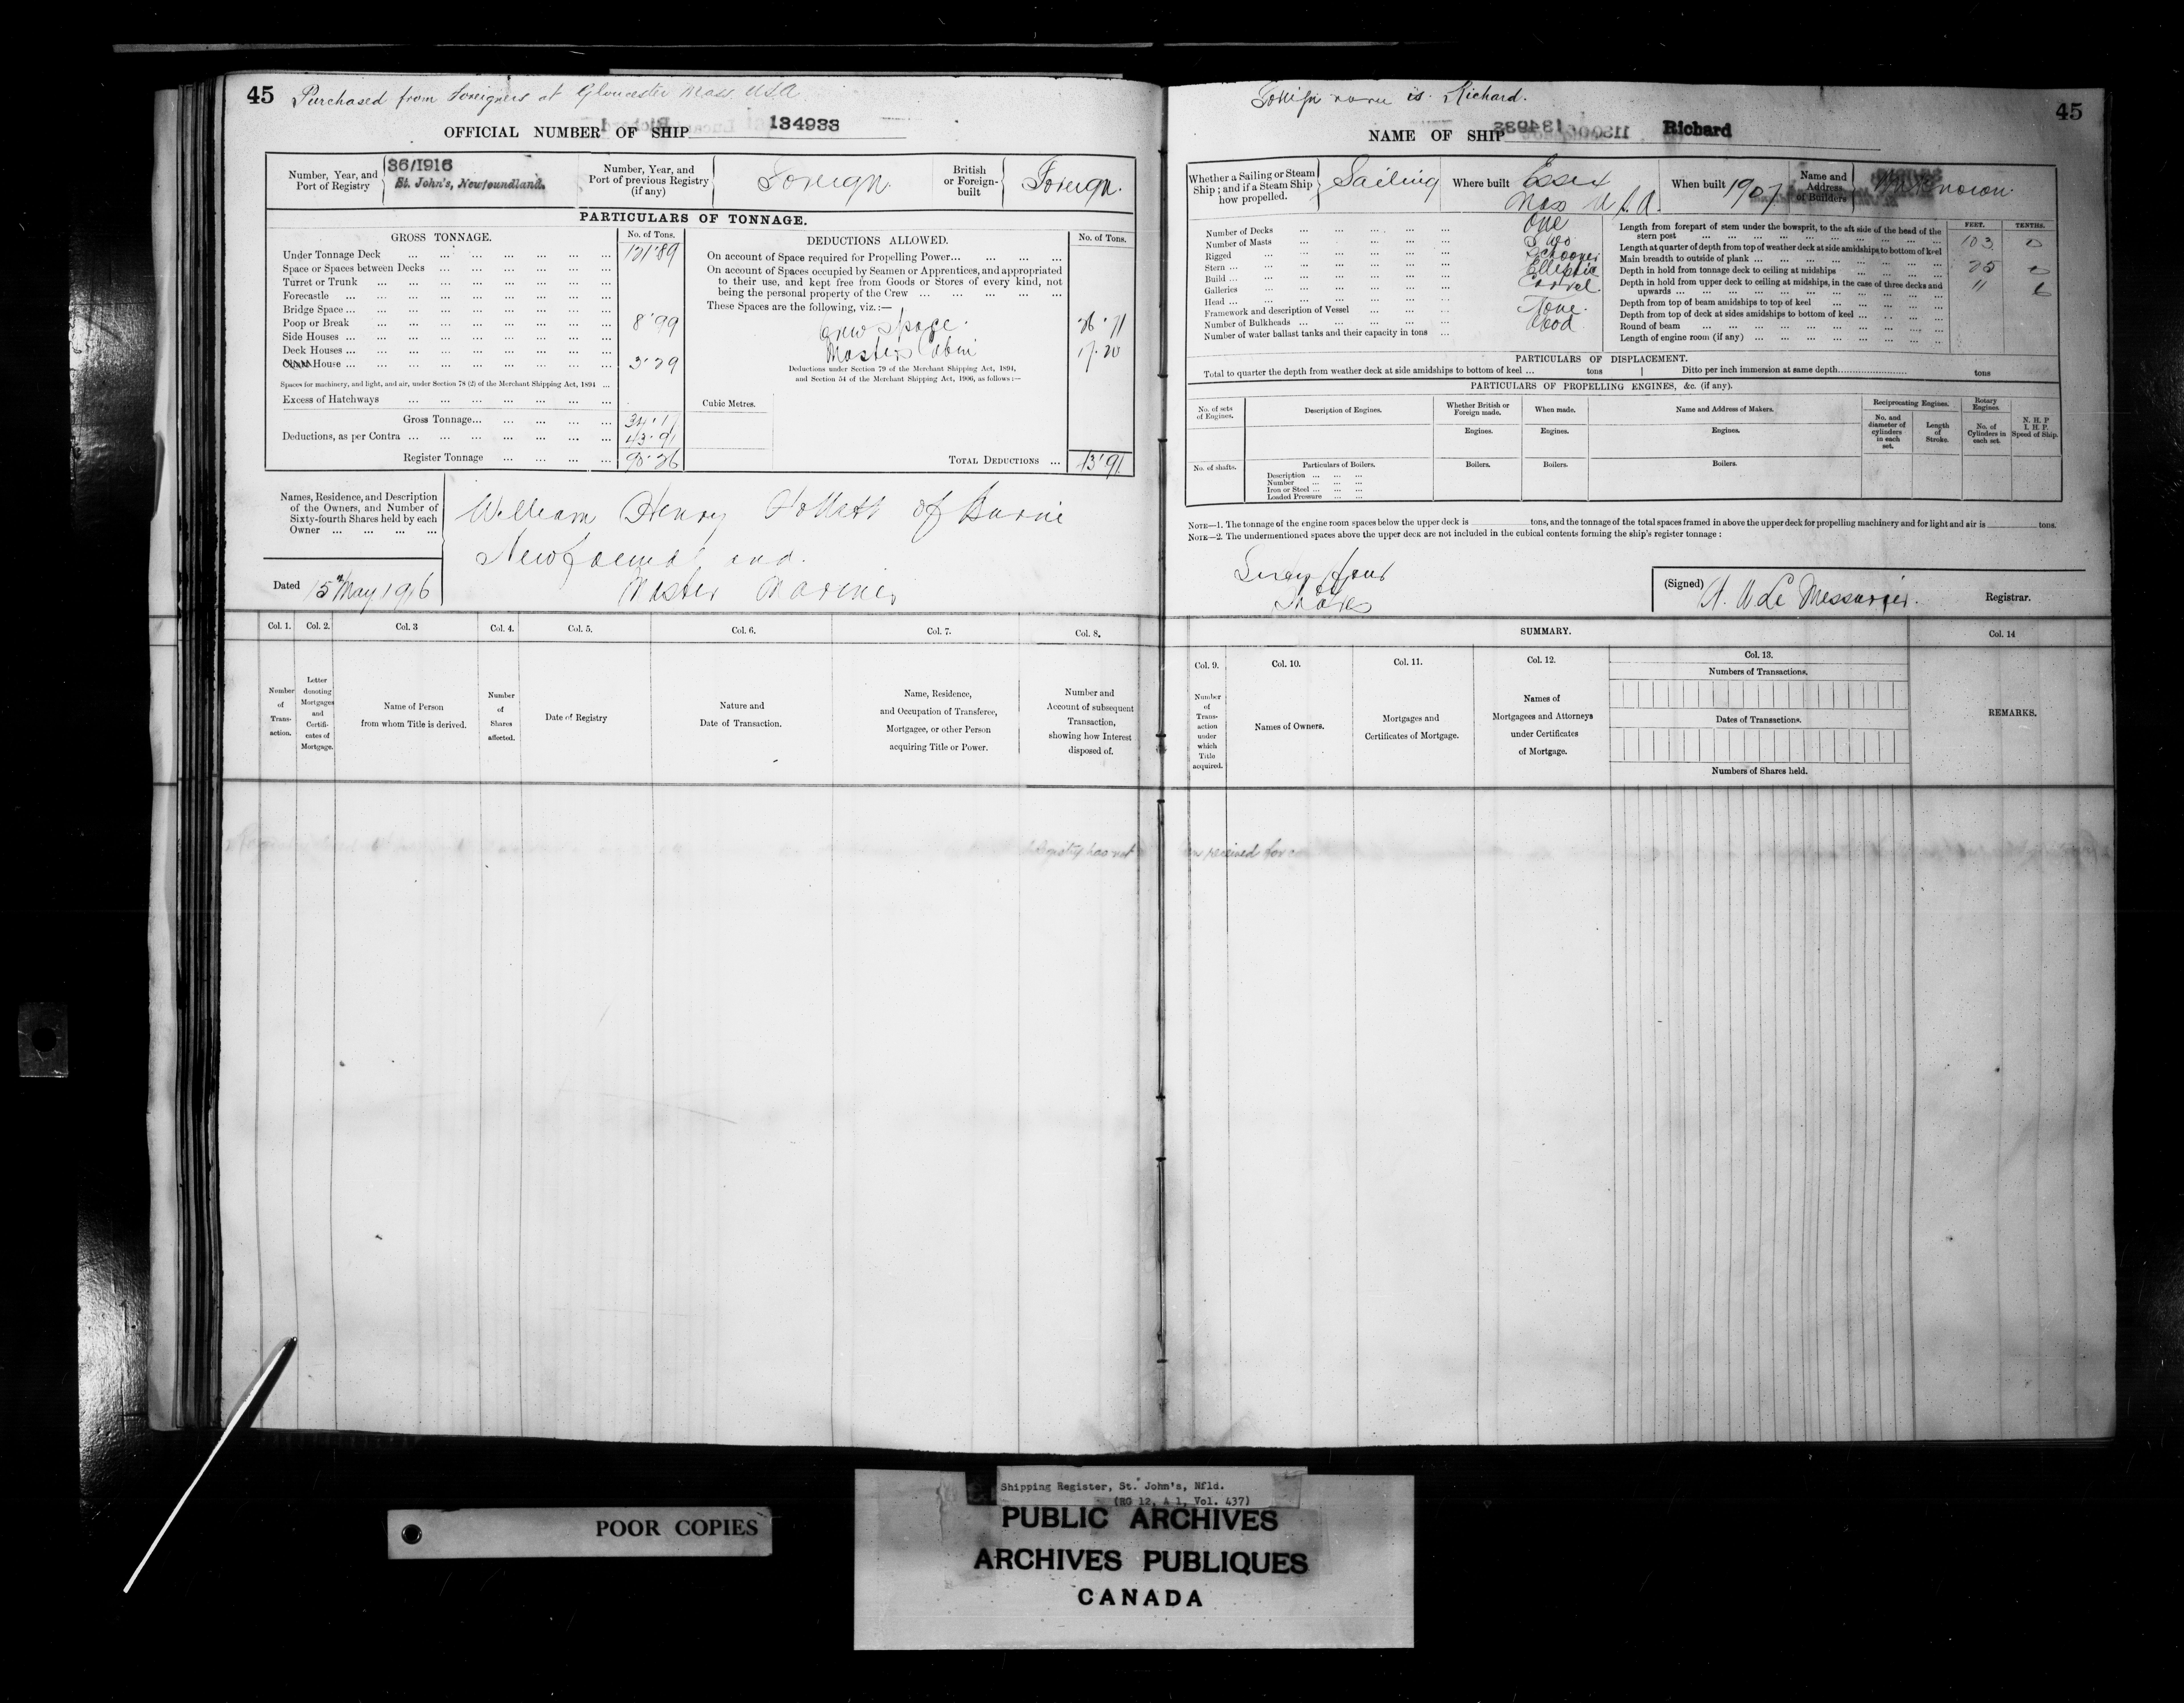 45 Purchased from Foreigners at Gloucester Mass USA
OFFICIAL NUMBER OF SHIP 134933
Number, Year, and Port of Registry 36/1916 St. John's, Newfoundland.
Number, Year, and Port of previous Registry (if any) Foreign.
British or Foreign-built Foreign.
PARTICULARS OF TONNAGE.
GROSS TONNAGE. No. of Tons.
Under Tonnage Deck 121.89
Space or Spaces between Decks
Turret or Trunk
Forecastle
Bridge Space
Poop or Break 8.99
Side Houses
Deck Houses
House 3.29
Spaces for machinery, and light, and air, under Section 78 (2) of the Merchant Shipping Act, 1894
Excess of Hatchways
Gross Tonnage 34.17
Deductions, as per Contra 43.91
Register Tonnage 90.26
DEDUCTIONS ALLOWED. No. of Tons.
On account of Space required for Propelling Power
On account of Spaces occupied by Seamen or Apprentices, and appropriated
to their use, and kept free from Goods or Stores of every kind, not
being the personal property of the Crew
These Spaces are the following, viz.:—
Crew space. 26.71
Masters Cabin 17.20
Deductions under Section 79 of the Merchant Shipping Act, 1894,
and Section 54 of the Merchant Shipping Act, 1906, as follows:—
Cubic Metres.
TOTAL DEDUCTIONS 43.91
Names, Residence, and Description
of the Owners, and Number of
Sixty-fourth Shares held by each
Owner
William Henry Hollett of Burin
Newfoundland.
Master Mariner
Dated 15th May 1916
Col. 1. Col. 2. Col. 3 Col. 4. Col. 5. Col. 6. Col. 7. Col. 8.
Number of Transaction.
Letter denoting Mortgages and Certificates of Mortgage.
Name of Person from whom Title is derived.
Number of Shares affected.
Date of Registry
Nature and Date of Transaction.
Name, Residence, and Occupation of Transferee, Mortgagee, or other Person acquiring Title or Power.
Number and Account of subsequent Transaction, showing how Interest disposed of.
Foreign name is Richard.
45
NAME OF SHIP Richard
Whether a Sailing or Steam Ship; and if a Steam Ship how propelled. Sailing
Where built Essex Mass U.S.A.
When built 1907
Name and Address of Builders Unknown.
Number of Decks One
Number of Masts Two
Rigged Schooner
Stern Elliptic
Build Carvel
Galleries
Head None.
Framework and description of Vessel Wood
Number of Bulkheads
Number of water ballast tanks and their capacity in tons
FEET. TENTHS.
Length from forepart of stem under the bowsprit, to the aft side of the head of the
stern post 103 0
Length at quarter of depth from top of weather deck at side amidships to bottom of keel
Main breadth to outside of plank 25 0
Depth in hold from tonnage deck to ceiling at midships 11 6
Depth in hold from upper deck to ceiling at midships, in the case of three decks and
upwards
Depth from top of beam amidships to top of keel
Depth from top of deck at sides amidships to bottom of keel
Round of beam
Length of engine room (if any)
PARTICULARS OF DISPLACEMENT.
Total to quarter the depth from weather deck at side amidships to bottom of keel ... tons Ditto per inch immersion at same depth tons
PARTICULARS OF PROPELLING ENGINES, &c. (if any).
No. of sets of Engines.
Description of Engines.
Whether British or Foreign made.
When made.
Name and Address of Makers.
Reciprocating Engines.
No. and diameter of cylinders in each set.
Length of Stroke.
Rotary Engines.
No. of Cylinders in each set.
N. H. P
I. H. P.
Speed of Ship.
Engines. Engines. Engines.
No. of shafts. Particulars of Boilers. Boilers. Boilers. Boilers.
Description
Number
Iron or Steel
Loaded Pressure
NOTE—1. The tonnage of the engine room spaces below the upper deck is tons, and the tonnage of the total spaces framed in above the upper deck for propelling machinery and for light and air is tons.
NOTE—2. The undermentioned spaces above the upper deck are not included in the cubical contents forming the ship's register tonnage:
Sixty four
Shares
(Signed) H. W. Le Messurier. Registrar.
SUMMARY.
Col. 14
Col. 9. Col. 10. Col. 11. Col. 12. Col. 13.
Number of Transaction under which Title acquired.
Names of Owners.
Mortgages and Certificates of Mortgage.
Names of Mortgagees and Attorneys under Certificates of Mortgage.
Numbers of Transactions.
Dates of Transactions.
Numbers of Shares held.
REMARKS.
Shipping Register, St. John's, Nfld.
(RG 12, A 1, Vol. 437)
POOR COPIES
PUBLIC ARCHIVES
ARCHIVES PUBLIQUES
CANADA